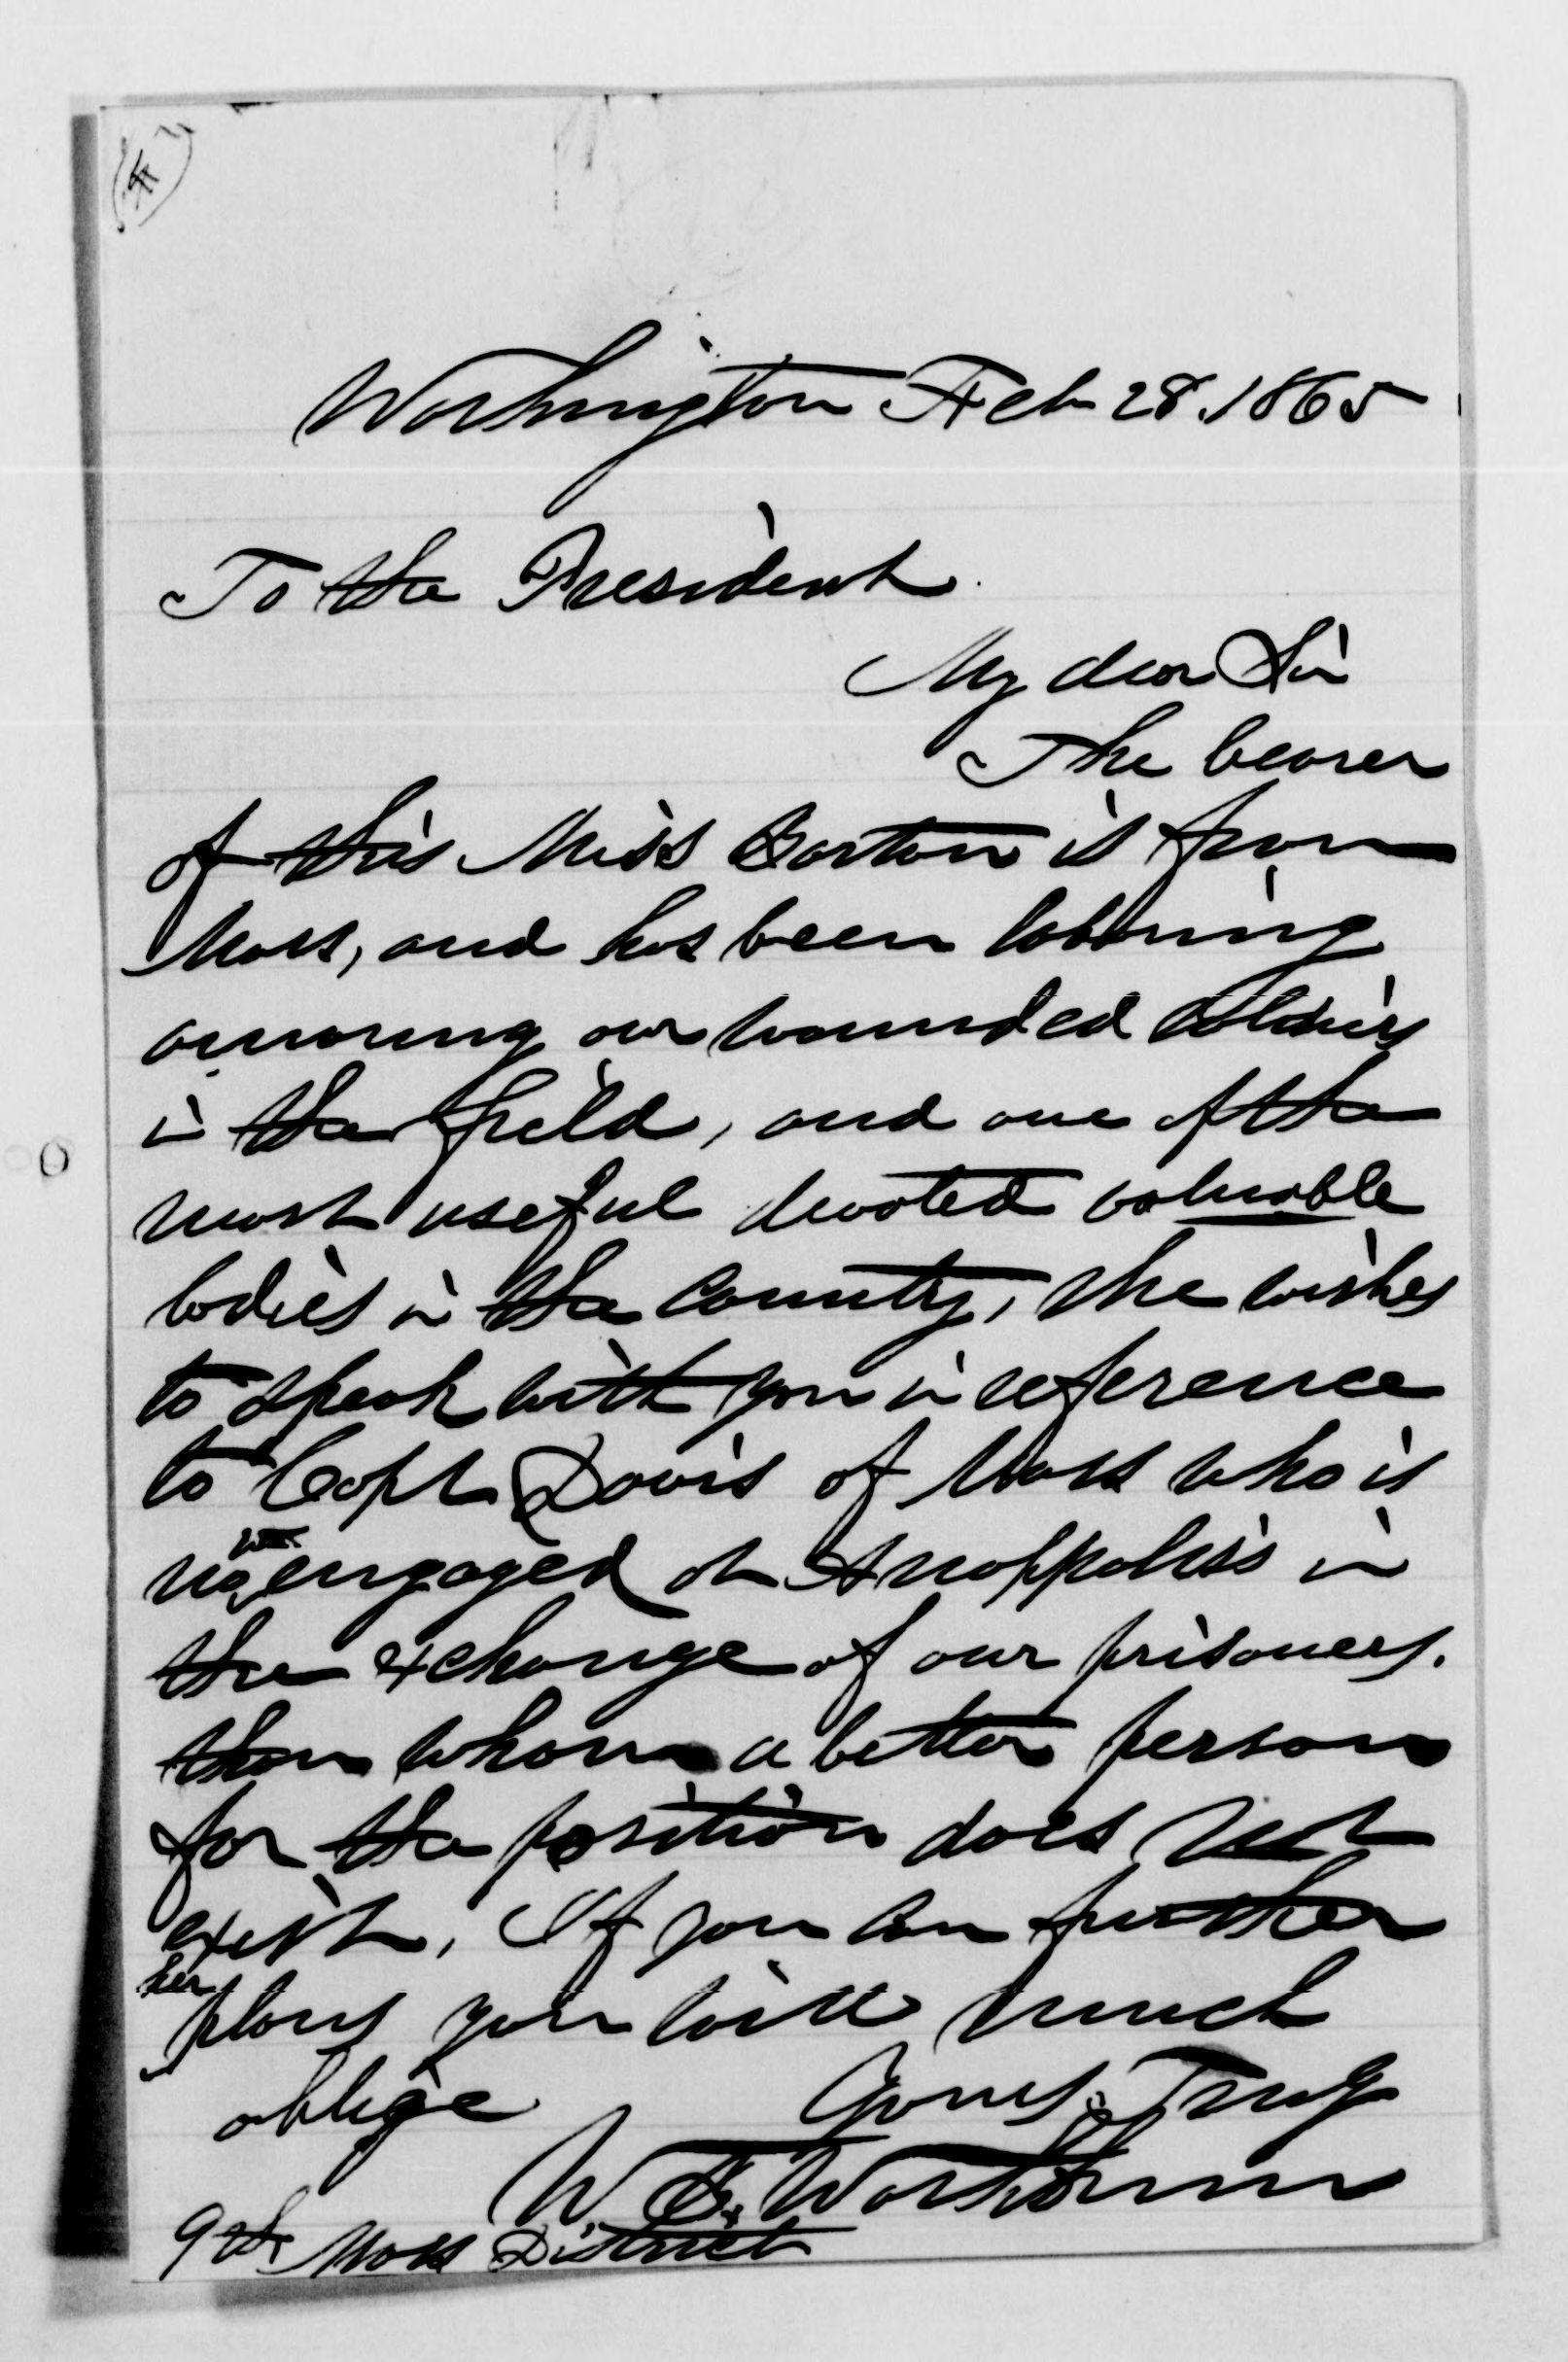 Washington Feb 28. 1865
To the President.
My dear Sir
The bearer
of this Miss Barton is from
Mass, and has been laboring
among our wounded soldiers
in the field, and one of the
most useful devoted valuable
bodies in the Country, She wishes
to speak with you in reference
to Capt Davis of Mass who is
now engaged at Annappolis in
the exchange of our prisoners.
than whom a better person
for the position does not
exist, If you can further
her
plans you will much
oblige Yours Truly
W. B. Washburn
9th Mass District